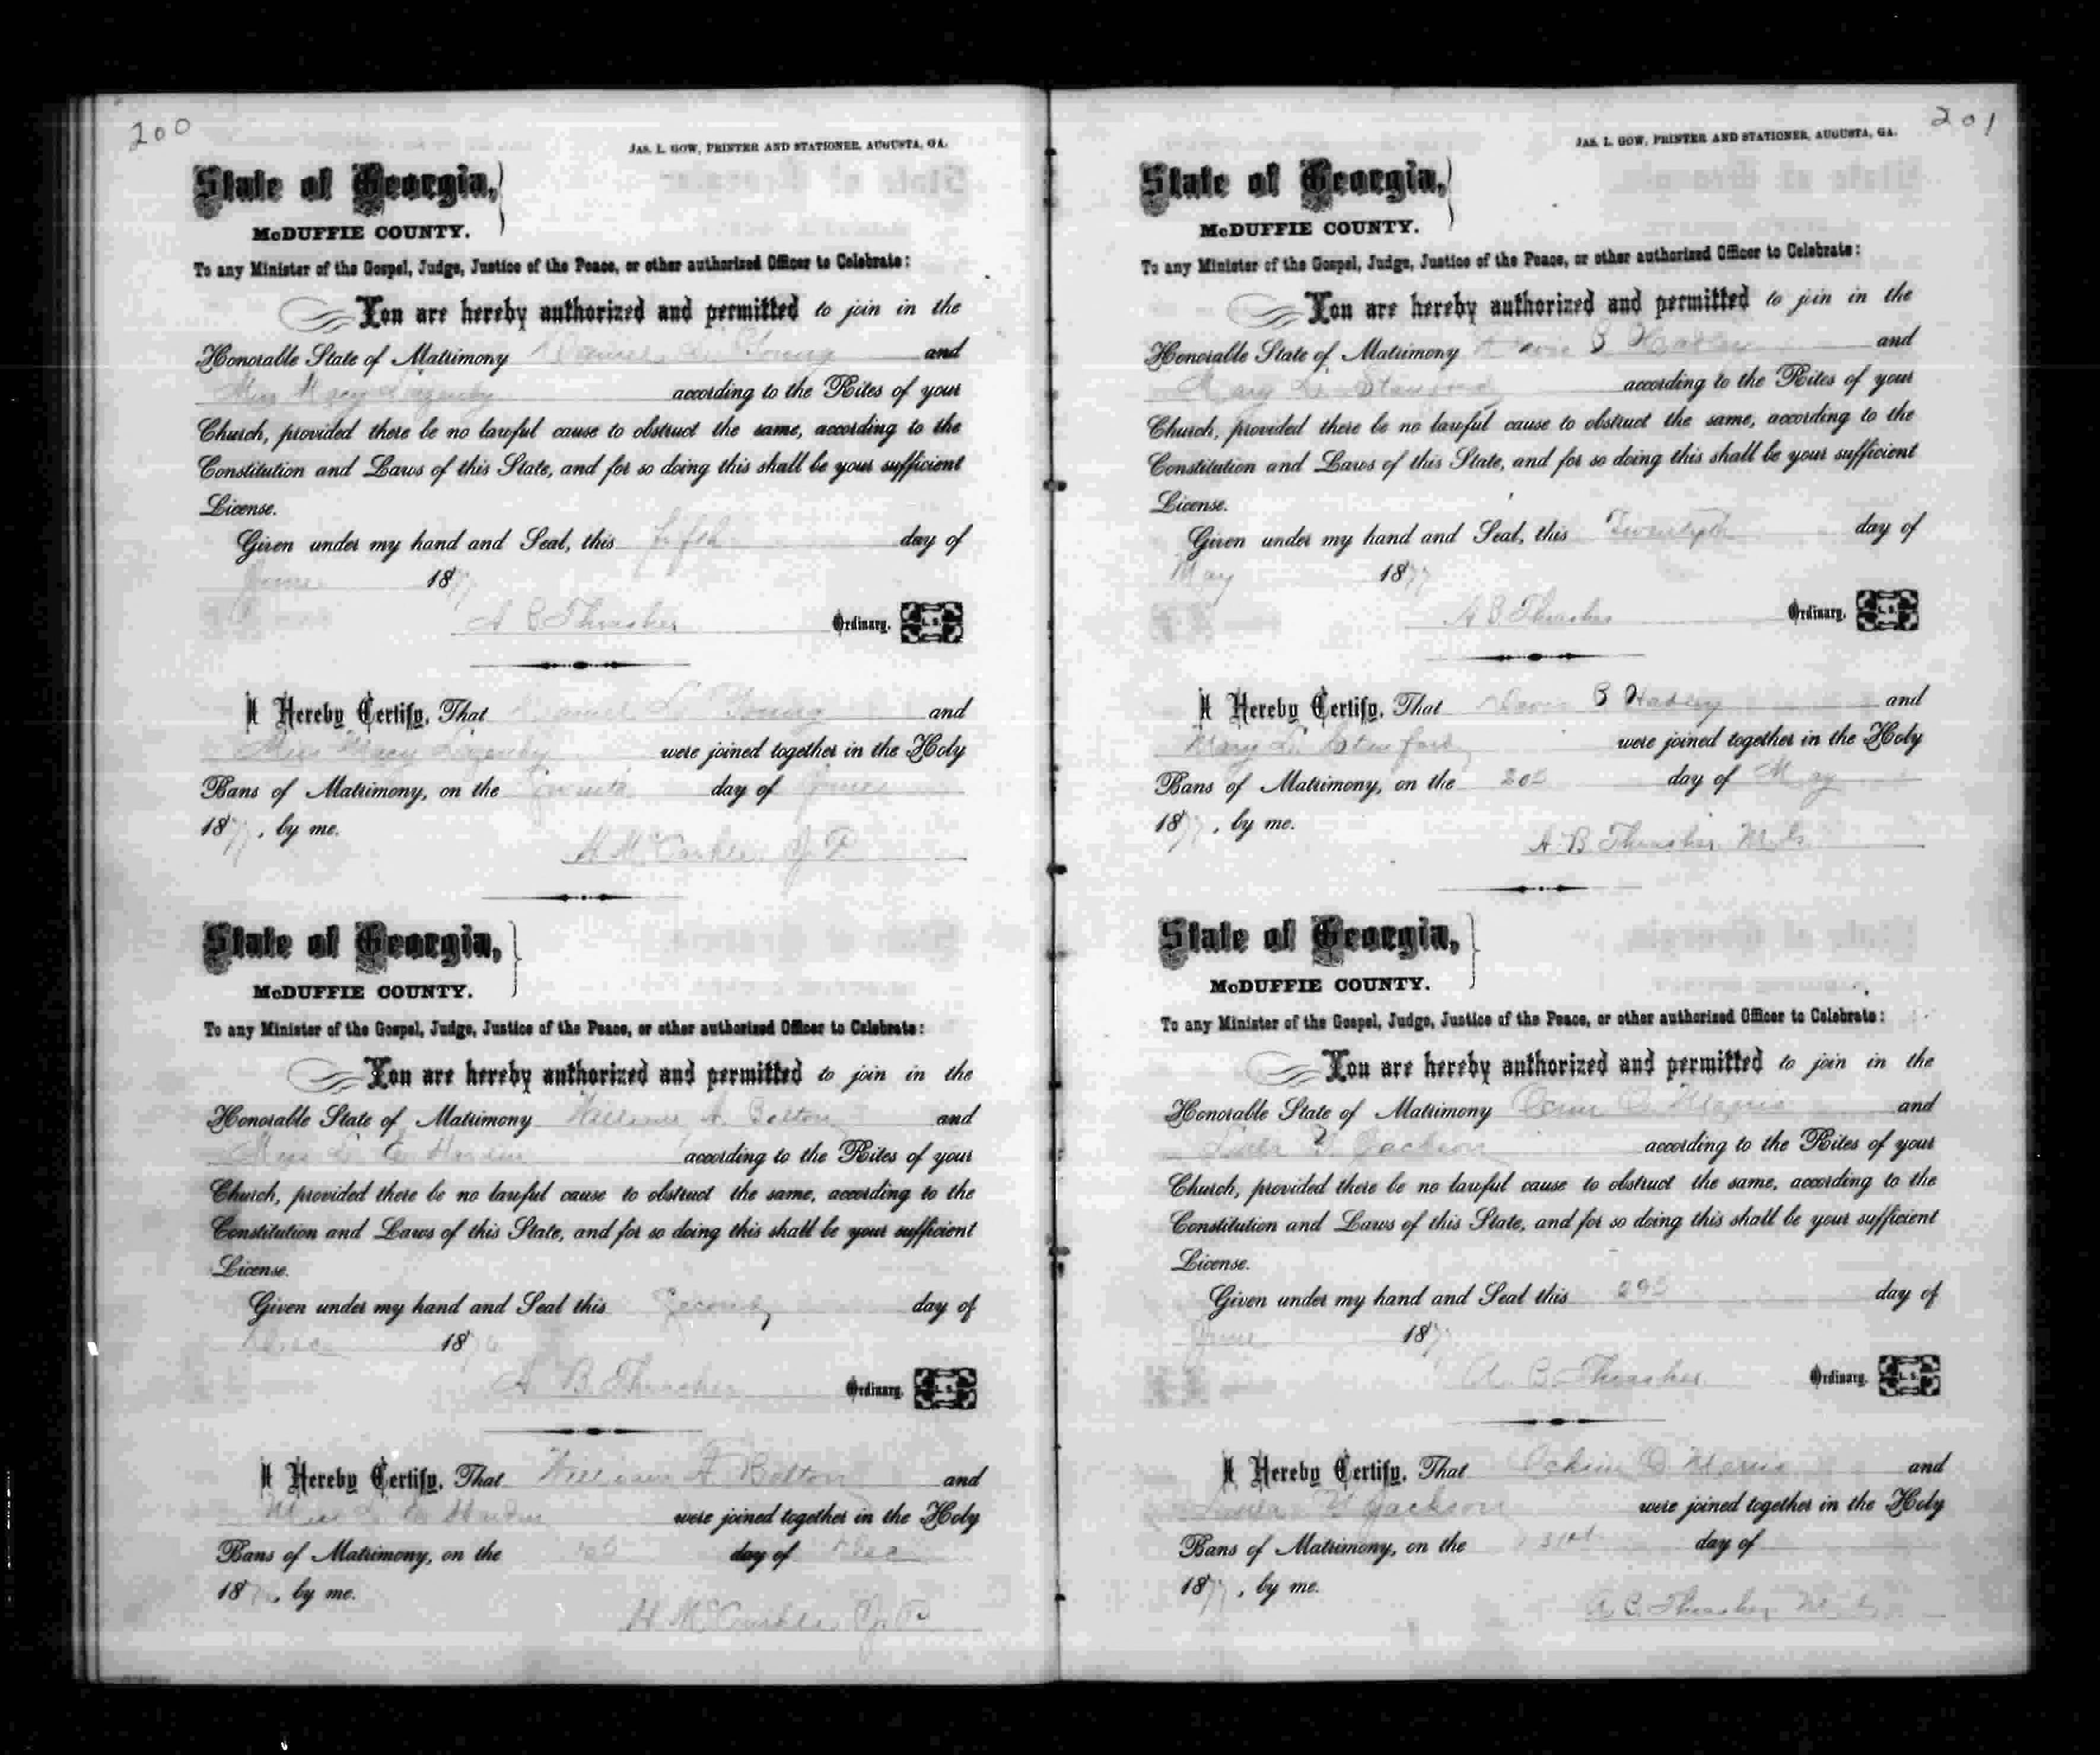 200
JAS. L. GOW, PRINTER AND STATIONER, AUGUSTA, GA.
State of Georgia,
McDUFFIE COUNTY.
To any Minister of the Gospel, Judge, Justice of the Peace, or other authorized Officer to Celebrate:
You are hereby authorized and permitted to join in the
Honorable State of Matrimony Young and
Miss according to the Rites of your
Church, provided there be no lawful cause to obstruct the same, according to the
Constitution and Laws of this State, and for so doing this shall be your sufficient
License.
Given under my hand and Seal, this day of
June 1877
A B Thrasher Ordinary. L. S.
I Hereby Certify, That Young and
Miss were joined together in the Holy
Bans of Matrimony, on the day of June
1877, by me.
H McCorkle J. P
State of Georgia,
McDUFFIE COUNTY.
To any Minister of the Gospel, Judge, Justice of the Peace, or other authorized Officer to Celebrate:
You are hereby authorized and permitted to join in the
Honorable State of Matrimony William A. Bolton and
Miss L. E. according to the Rites of your
Church, provided there be no lawful cause to obstruct the same, according to the
Constitution and Laws of this State, and for so doing this shall be your sufficient
License.
Given under my hand and Seal this Second day of
1876
A B. Thrasher Ordinary. L. S.
I Hereby Certify, That William A Bolton and
Miss L. E. were joined together in the Holy
Bans of Matrimony, on the day of Dec
187, by me.
H McCorkle J. P
201
JAS. L. GOW, PRINTER AND STATIONER, AUGUSTA, GA.
State of Georgia,
McDUFFIE COUNTY.
To any Minister of the Gospel, Judge, Justice of the Peace, or other authorized Officer to Celebrate:
You are hereby authorized and permitted to join in the
Honorable State of Matrimony B and
Mary L. Stanford according to the Rites of your
Church, provided there be no lawful cause to obstruct the same, according to the
Constitution and Laws of this State, and for so doing this shall be your sufficient
License.
Given under my hand and Seal, this Twentyeth day of
May 1877
A B Thrasher Ordinary. L. S.
I Hereby Certify, That B and
Mary L. Stanford were joined together in the Holy
Bans of Matrimony, on the 20 day of May
1877, by me.
A B Thrasher M. G.
State of Georgia,
McDUFFIE COUNTY.
To any Minister of the Gospel, Judge, Justice of the Peace, or other authorized Officer to Celebrate:
You are hereby authorized and permitted to join in the
Honorable State of Matrimony and
Jackson according to the Rites of your
Church, provided there be no lawful cause to obstruct the same, according to the
Constitution and Laws of this State, and for so doing this shall be your sufficient
License.
Given under my hand and Seal this 29 day of
June 187
A. B. Thrasher Ordinary. L. S.
I Hereby Certify, That and
Jackson were joined together in the Holy
Bans of Matrimony, on the 31st day of
1877, by me.
A. B. Thrasher M. G.